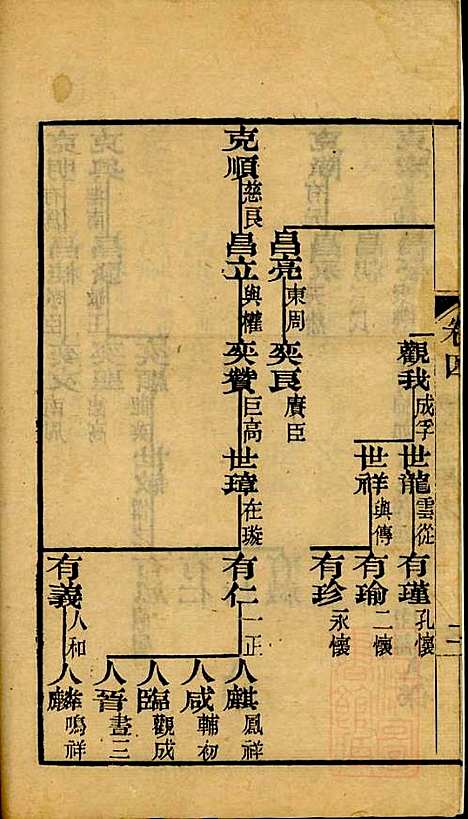 卷四
二
觀我 成孚 世龍 雲從 有瑾 孔懷
世祥 與傳 有瑜 二懷
有珍 永懷
昌亮 東周 奕良 賡臣
克順 慈良 昌立 與權 奕贊 巨高 世璋 在璇 有仁 一正 人麒 鳳祥
人咸 輔初
人臨 觀成
人晉 晝三
有義 人和 人麟 鳴祥